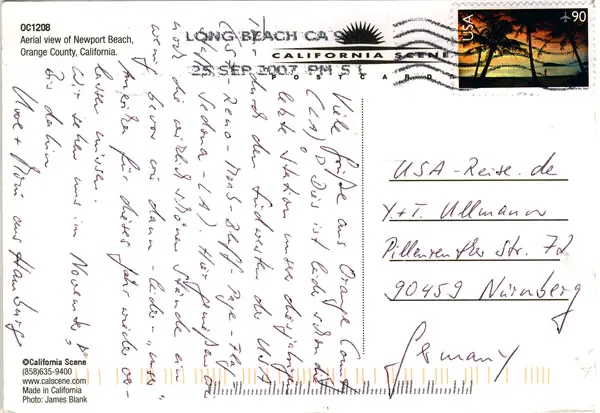 OC1208
Aerial view of Newport Beach,
Orange County, California.
LONG BEACH CA
25 SEP 2007 PM 5 L
CALIFORNIA SCENE
POSTCARDS
USA
90
Viele Grüße aus Orange County
(CA)! Dies ist leider schon die
letzte Station unserer diesjährigen
durch den Südwesten der USA
Reno - Moab - Bluff - Page - Flag
Sedona - LA). Hier genießen wir
noch die wirklich schönen Strände ein
wenig bevor wir dann - leider - "unser"
Amerika für dieses Jahr wieder ver-
lassen müssen.
Wir sehen uns im November,
Bis dahin
Uwe + aus Hamburg
USA-Reise.de
Y+T. Ullmann
Pillenreuther Str. 72
90459 Nürnberg
Germany
©California Scene
(858)635-9400
www.calscene.com
Made in California
Photo: James Blank